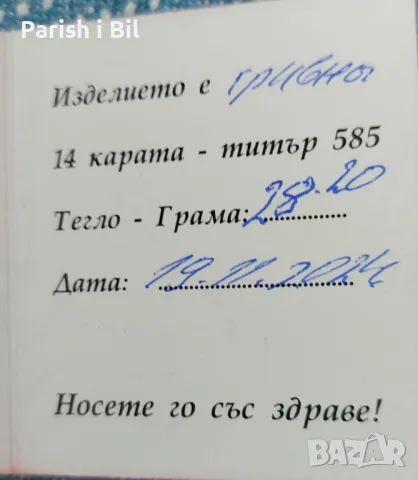 Parish i Bil
Изделието е гривна
14 карата - титър 585
Тегло - Грама: 28.20
Дата: 19.11.2024
Носете го със здраве!
BAZAR